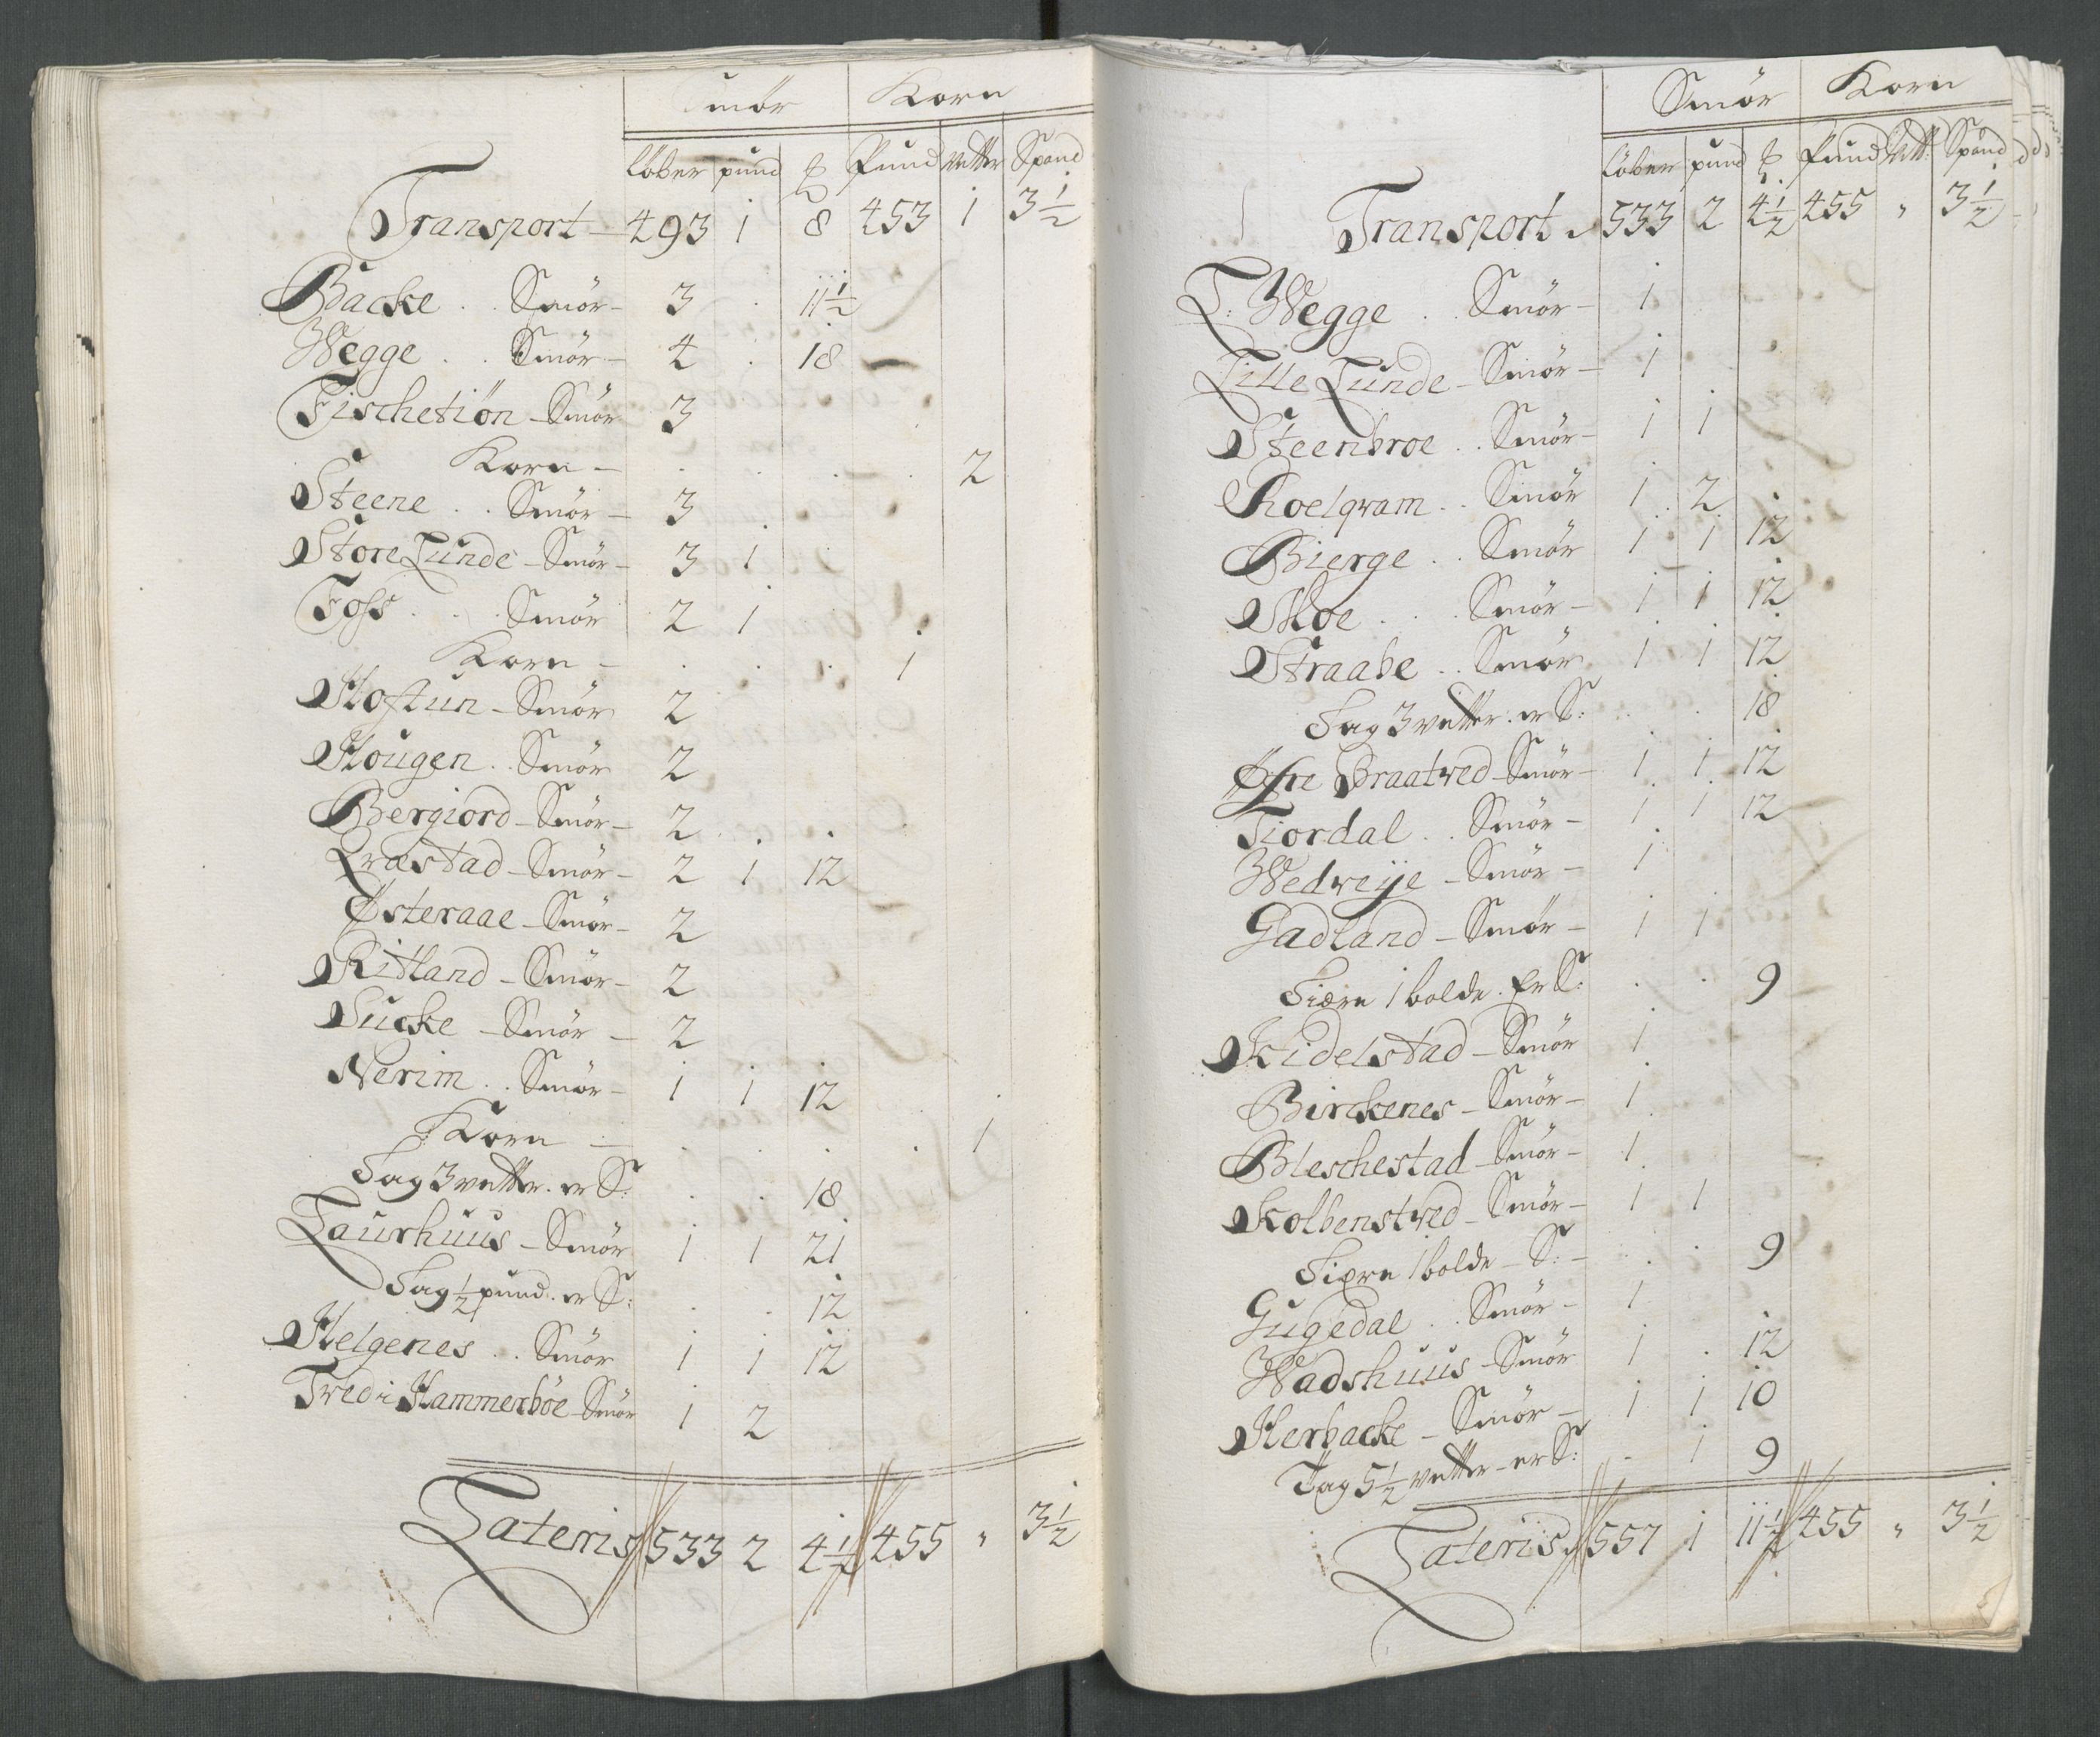 Smør Korn
Løber pund ℔ Pund Vetter Spand
Transport 493 1 8 453 1 3½
Backe . . Smør 3 . 11½
Wegge . . Smør 4 . 18
Fischetiøn Smør 3
Korn 2
Steene . . Smør 3
Store Lunde Smør 3 1
Foss . . . Smør 2 1
Korn 1
Hoftun Smør 2
Hougen . . Smør 2
Bergiord Smør 2
Lrastad Smør 2 1 12
Østeraae Smør 2
Ritland Smør 2
Sucke Smør 2
Nerim . . Smør 1 1 12
Korn 1
Lag 3 vetter er S: 18
Laurhuus Smør 1 1 21
Lag ½ pund er S: 12
Helgenes . . Smør 1 1 12
Tved i Hammerbøe Smør 1 2
Lateris 533 2 4½ 455 " 3½
Smør Korn
Løber pund ℔ Pund Vett: Spand
Transport 533 2 4½ 455 " 3½
L: Wegge . . Smør 1
Lille Lunde Smør 1
Steenbroe . . Smør 1 1
Roelqvam . . Smør 1 2
Bierge . . Smør 1 1 12
Moe . . . Smør 1 1 12
Straabe . . Smør 1 1 12
Lag 3 vetter er S: 18
Øfre Braatved Smør 1 1 12
Tiordal . . Smør 1 1 12
Wedveije Smør 1
Gadland Smør 1 1
Tiære 1 bolde Er S: 9
Kidelstad Smør 1
Birckenes Smør 1
Bleschestad Smør 1
Kolbenstved Smør 1 1
Tiære 1 bolde S: 9
Gugedal . . Smør 1
Wadshuus Smør 1 . 12
Herbacke Smør 1 1 10
Lag 5½ vetter er S: 1 9
Lateris 557 1 11½ 455 " 3½